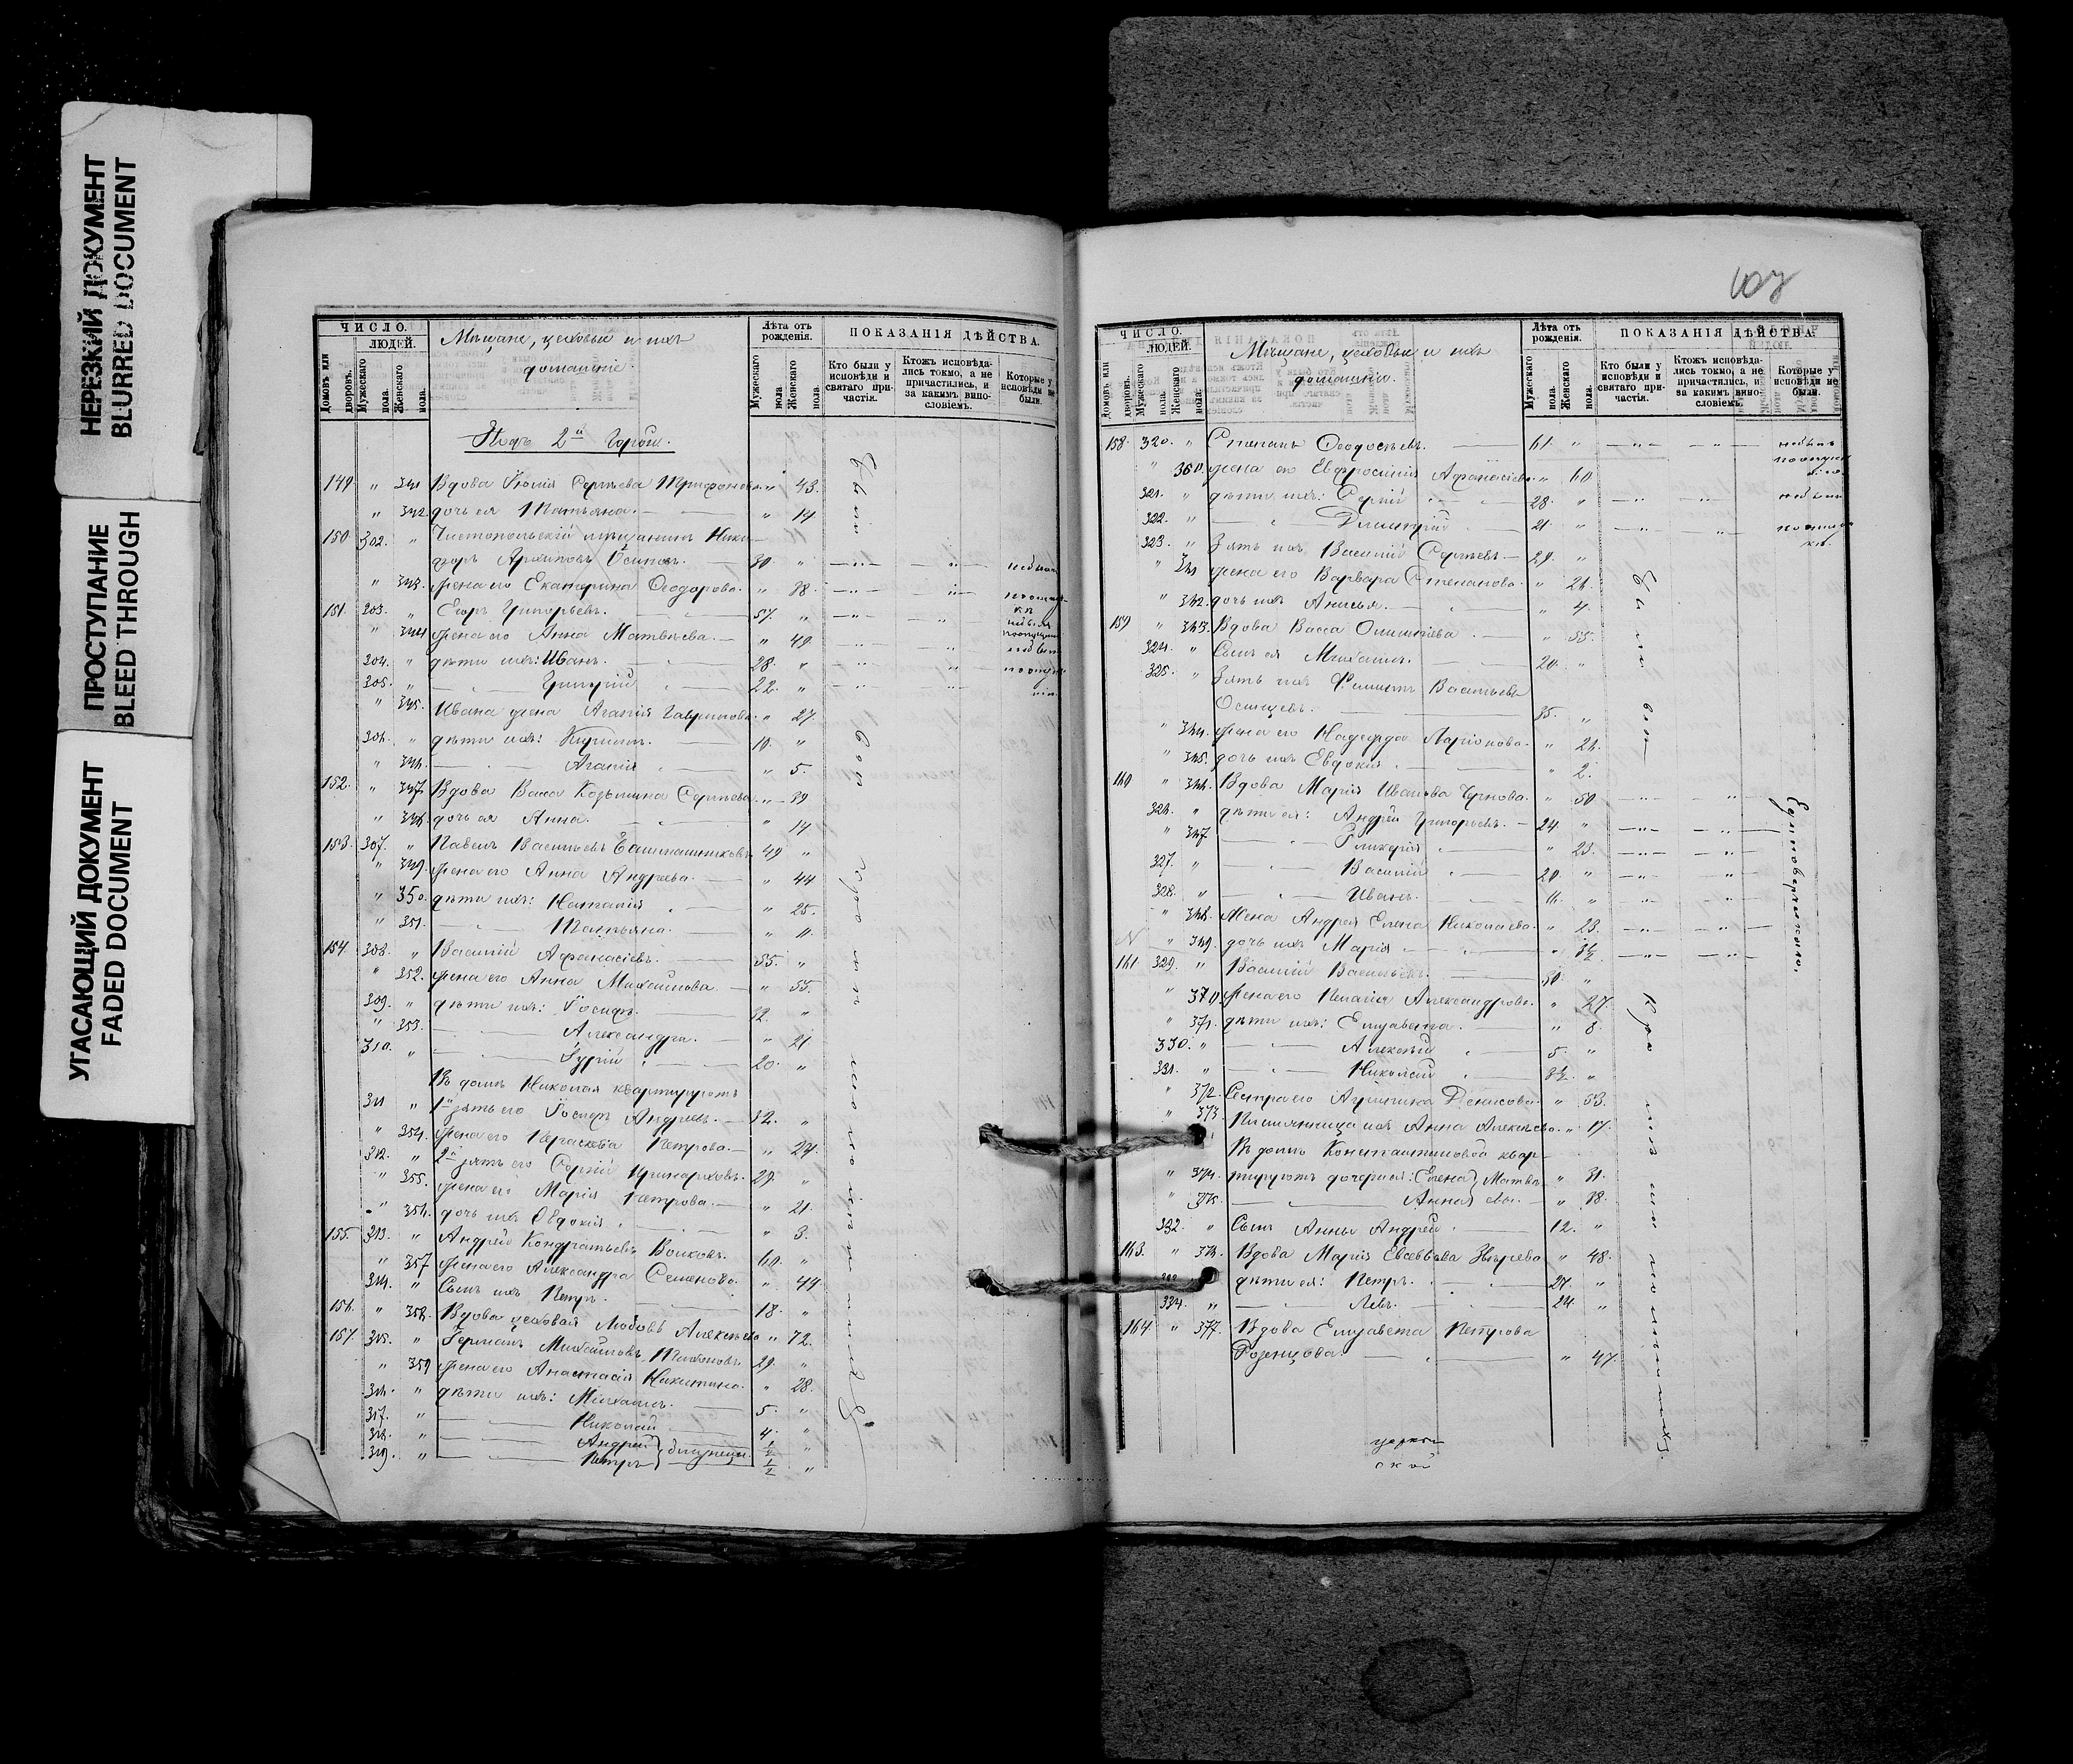 НЕРЕЗКИЙ ДОКУМЕНТ
BLURRED DOCUMENT
ПРОСТУПАНИЕ
BLEED THROUGH
УГАСАЮЩИЙ ДОКУМЕНТ
FADED DOCUMENT
ЧИСЛО.
ЛЮДЕЙ.
Домовъ или дворовъ.
Мужескаго пола.
Женскаго пола.
Мѣщане, цеховые и ихъ
домашніе.
Лѣта отъ рожденія.
Мужескаго пола.
Женскаго пола.
ПОКАЗАНІЯ ДѢЙСТВА.
Кто были у исповѣди и святаго причастія.
Ктожъ исповѣдались токмо, а не причастились, и за какимъ винословіемъ.
Которые у исповѣди не были.
149 " 341 Вдова Юлія Сергѣева " 43.
" 342 дочь ея Татьяна. " 14
150 302. " Чистопольскій мѣщанинъ Ники-
форъ Архиповъ Осиповъ. 30. "
" 343. жена его Екатерина Ѳеодорова. " 38.
151. 303. " Егоръ Григорьевъ. 57. "
" 344 жена его Анна Матвѣева. " 49
304. " дѣти ихъ: Иванъ. 28. "
305. " Григорій 22. "
" 345. Ивана жена Агапія Гаврилова. " 27.
306. " дѣти ихъ: Кириллъ. 10. "
" 346. Агапія " 5.
152. " 347 Вдова Васса Козьмина Сергѣева. " 39
" 348. дочь ея Анна. " 14
153. 307. " Павелъ Васильевъ Башмашниковъ 49 "
" 349. жена его Анна Андреева. " 44
" 350. дѣти ихъ: Наталія " 25.
" 351. Татьяна. " 11.
154. 308. " Василій Афанасіевъ. 55. "
" 352. жена его Анна Михайлова " 55.
309. " дѣти ихъ: Іосифъ. 32. "
" 353. Александра. " 21
310. " Гурій 20. "
Въ домѣ Николая квартируютъ
311 " 1й зять его Іосифъ Андреевъ. 32. "
" 354. жена его Параскева Петрова. " 24.
312. " 2й зять его Сергій 29. "
" 355. жена его Марія Петрова. " 21.
" 356. дочь ихъ Евдокія. " 3.
155. 313. " Андрей Кондратьевъ Волковъ. 60. "
" 357 жена его Александра Семенова. " 44
314. " Сынъ ихъ Петръ. 18. "
156. " 358. Вдова цеховая Любовь Алексѣева " 72.
157. 315. " Германъ Михайловъ Тихоновъ 29. "
" 359 жена его Анастасія Никитина. " 28.
316. " дѣти ихъ: Михаилъ. 5. "
317. " Николай 4. "
318. " Андрей ½ "
319. " Петръ } близнецы. ½ "
107
ЧИСЛО.
ЛЮДЕЙ.
Домовъ или дворовъ.
Мужескаго пола.
Женскаго пола.
Мѣщане, цеховые и ихъ
домашніе.
Лѣта отъ рожденія.
Мужескаго пола.
Женскаго пола.
ПОКАЗАНІЯ ДѢЙСТВА.
Кто были у исповѣди и святаго причастія.
Ктожъ исповѣдались токмо, а не причастились, и за какимъ винословіемъ.
Которые у исповѣди не были.
158. 320. " Степанъ Ѳеодосѣевъ. 61. "
" 360. жена его Евфросинія Афанасіева. " 60
321. " дѣти ихъ: Сергій 28. "
322. " Димитрій 21. "
323. " Зять ихъ Василій Сергѣевъ 29. "
" 361 жена его Варвара Степанова. " 26.
" 362. дочь ихъ Анисья. " 4.
159 " 363. Вдова Васса " 55.
324. " Сынъ ея Михаилъ. 20. "
325. " Зять ихъ Филиппъ Васильевъ
Осинцевъ. 35. "
" 364. жена его Надежда Ларіонова. " 26.
" 365. дочь ихъ Евдокія. " 2.
160 " 366. Вдова Марія Иванова " 50
326. " дѣти ея: Андрей Григорьевъ. 24. "
" 367 Гликерія " 23.
327. " Василій 20 "
328. " Иванъ. 16. "
" 368. Жена Андрея Елена Николаева. " 23.
" 369. дочь ихъ Марія
161 329. " Василій Васильевъ. 30. "
" 370. жена его Пелагія Александрова. " 27.
" 371. дѣти ихъ: Елизавета. " 8.
330. " Алексѣй 5. "
331. " Николай "
" 372. Сестра его Агрипина Денисова. " 53.
" 373 Племянница ихъ Анна Алексѣева. " 17.
Въ домѣ Константиновой квар-
" 374. тируютъ дочери ея: Елена " 31.
" 375. Анна " 38.
332. " Сынъ Анны Андрей 12. "
163. " 376. Вдова Марія Евсевьева Звѣрева " 48.
333 " дѣти ея: Петръ. 27. "
334. " Левъ. 24. "
164 " 377. Вдова Елизавета Петрова
" 47.
Единовѣрческой
церкви